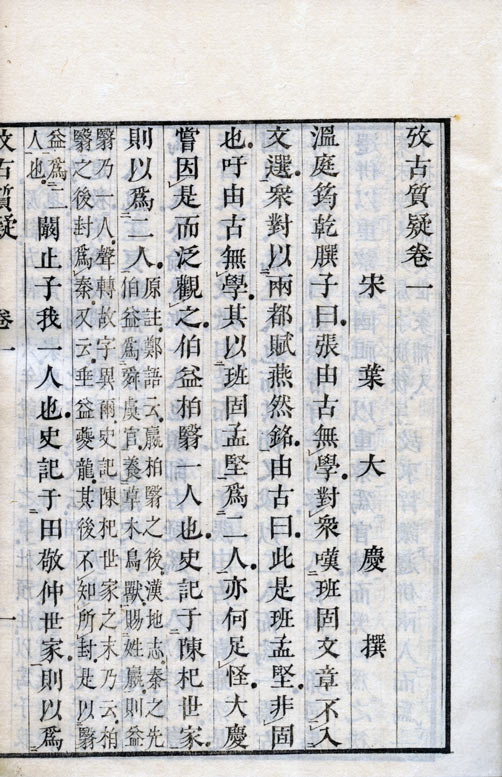 攷古質疑卷一
宋葉大慶撰
溫庭筠乾𦠆子曰張由古無學對衆嘆班固文章不入
文選衆對以兩都賦燕然銘由古曰此是班孟堅非固
也吁由古無學其以班固孟堅爲二人亦何足怪大慶
嘗因是而泛觀之伯益柏翳一人也史記于陳杞世家
則以爲二人原註鄭語云嬴柏翳之後漢地志秦之先
伯益爲舜虞官養草木鳥獸賜姓嬴則益
翳乃一人聲轉故字異爾史記陳杞世家之末乃云柏
翳之後封爲秦又云垂益夔龍其後不知所封是以翳
益爲二
人也闞止子我一人也史記于田敬仲世家則以爲
攷古質疑
卷一
一